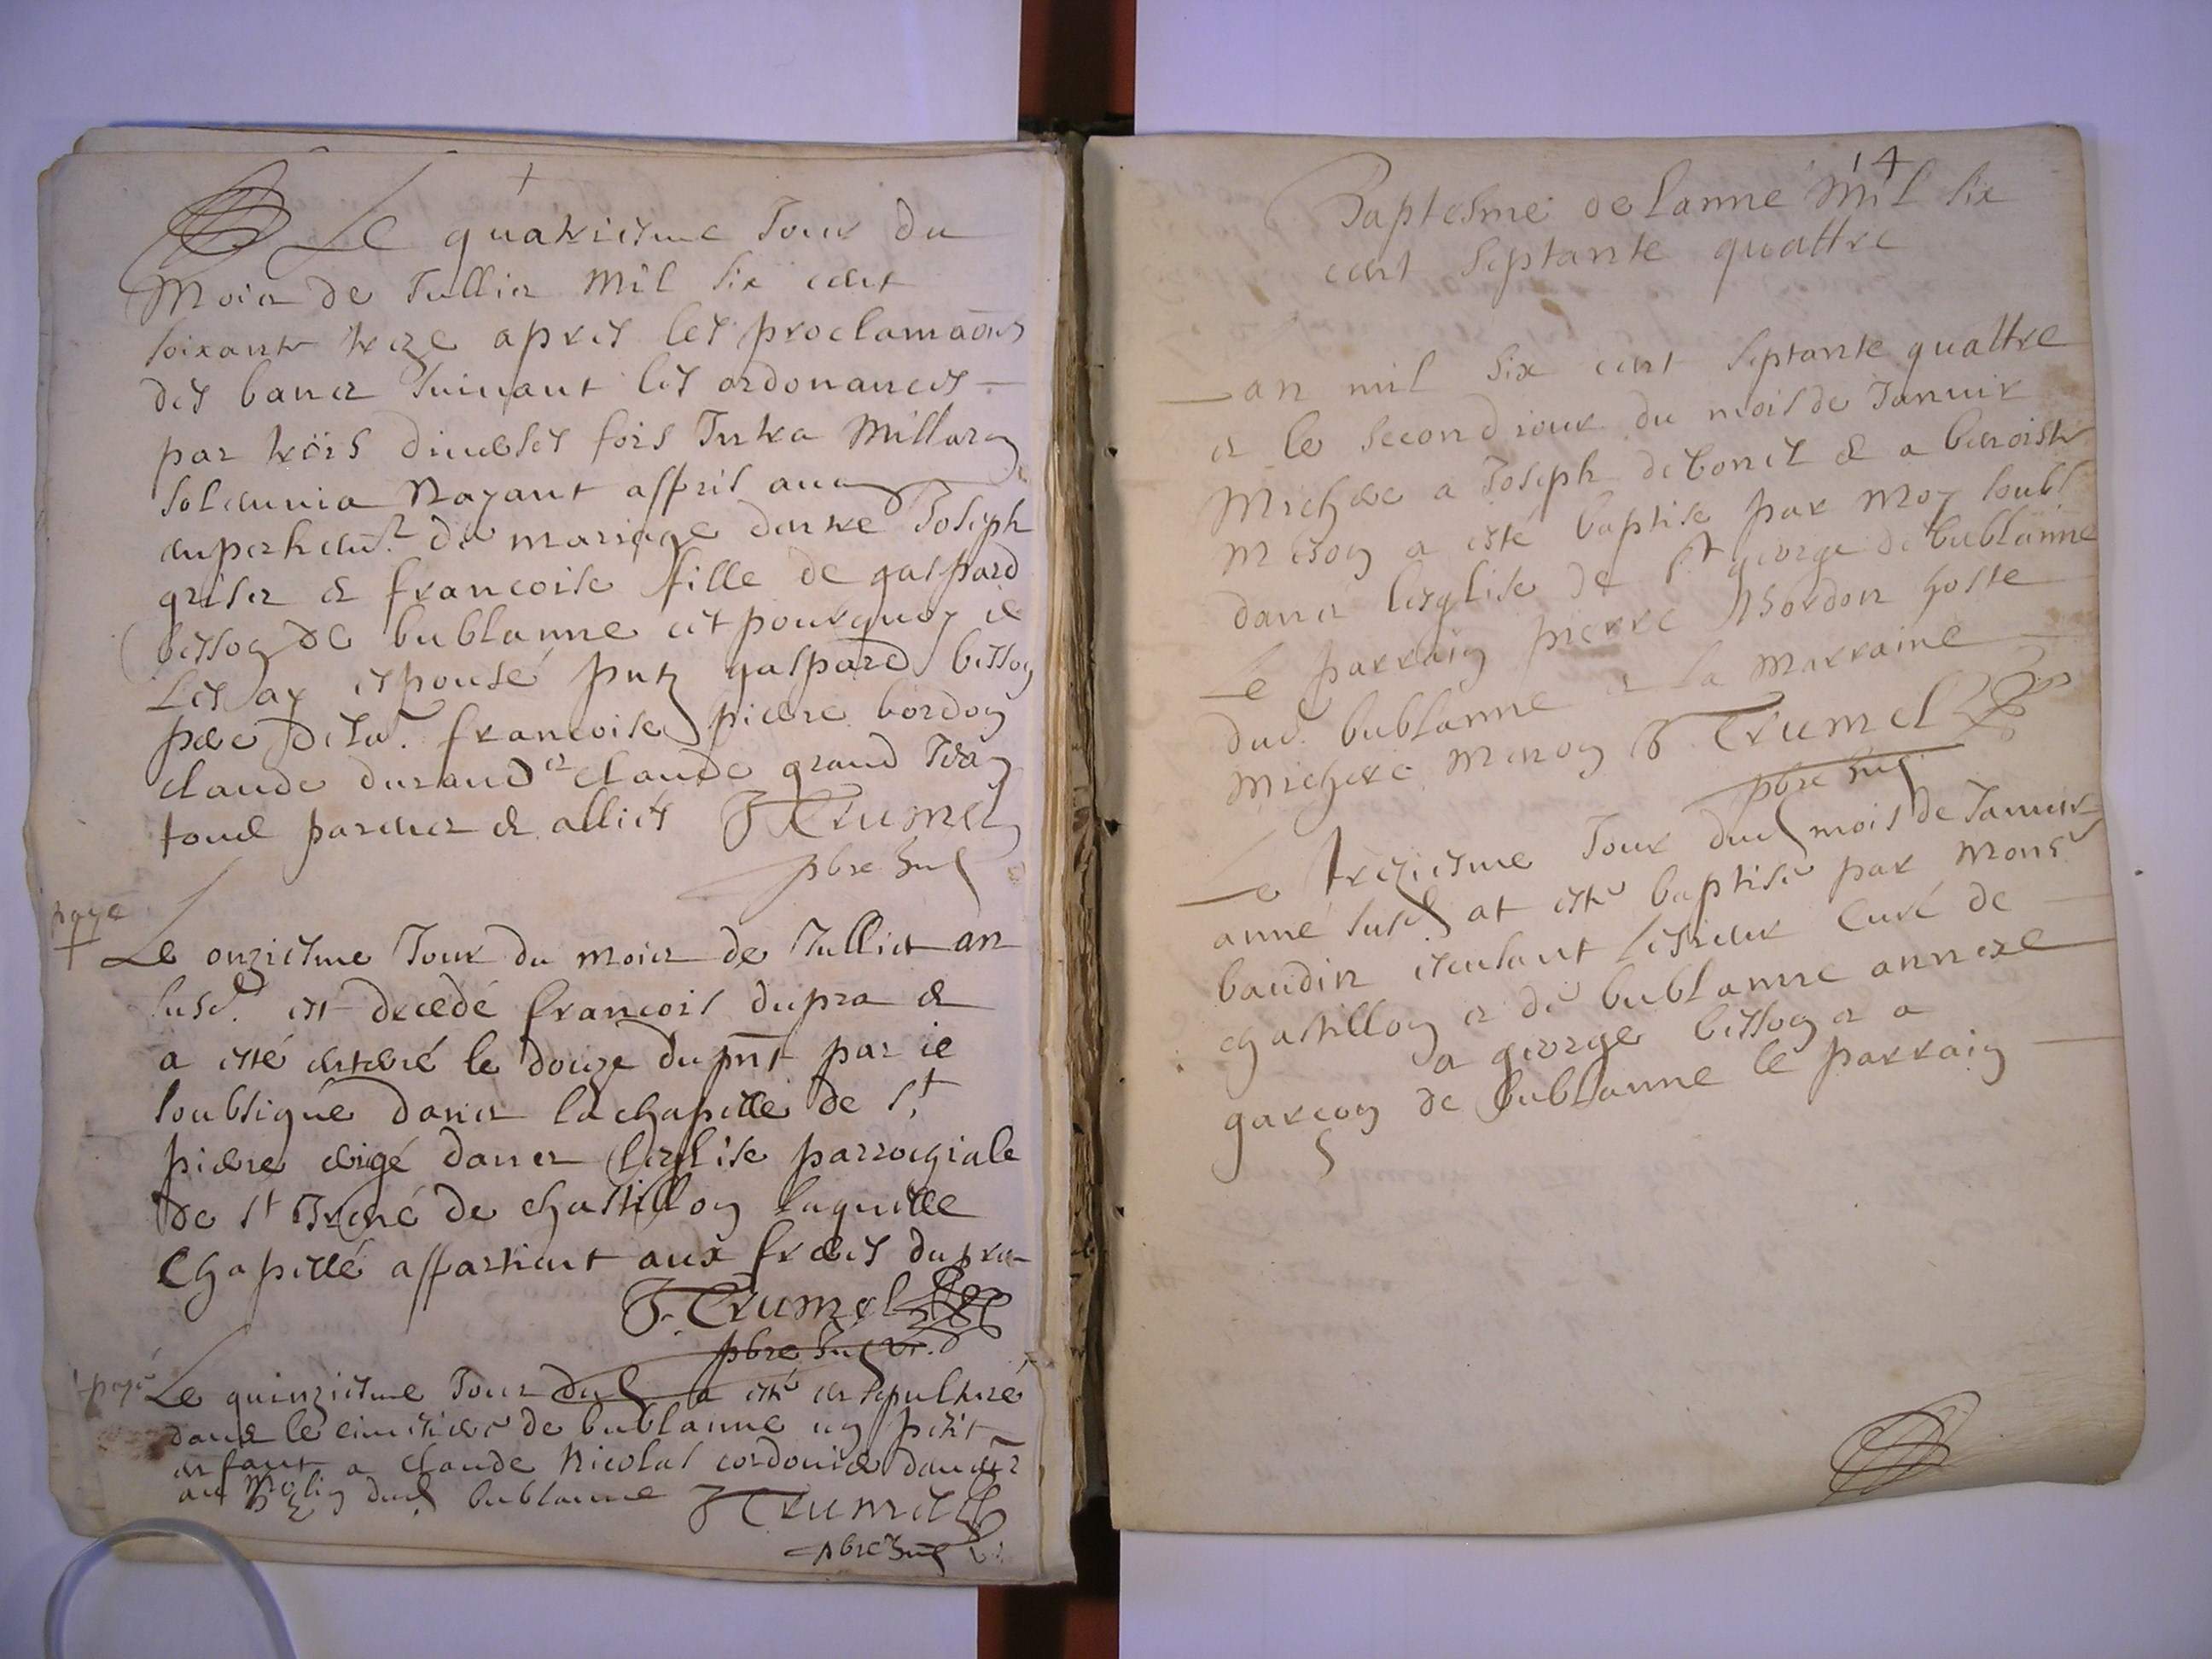 Le quatriesme Jour du
Mois de Jullier Mil six cent
soixant treze apres les proclamaons
des bancz suivant les ordonances
par trois diverses fois Intra Missarum
solemnia Nayant appris aucun
empeschemt de mariage dentre Joseph
griser et francoise fille de gaspard
bessoy de bublanne cest pourquoy ie
Les ay espousé pntz gaspard bessoy
pere delad. francoise pierre bordoy
claude durand et claude grand Jean
tous parens et alliés J Trumel
pbre Sus
paye
Le onziesme Jour du mois de Julliet an
susd. est decedé francois dupra et
a esté enterré le douze du pnt par ie
soubsigné dans la chapelle de St
pierre erigé dans lesglise parrochiale
de St Irené de chastilloy laquelle
Chapelle appartient aux freres dupra
J. Trumel
pbre Sus vi.
payé
Le quinziesme Jour dud a esté ensepulturé
dans le cimetiere de bublanne un petit
enfant a claude Nicolas cordonier
au Moliy dud bublanne J Trumel
pbre Sus vi.
14
Baptesme de lanne Mil six
cent septante quattre
Lan mil six cent septante quattre
et le second iour du mois de Januir
Michee a Joseph debonet et a benoiste
mesoy a esté baptise par moy soubs
dans lesglise de St george de bublanne
Le parraiy pierre bordon hoste
dud. bublanne et la marraine
michere meroy J Trumel
pbre Sus
Le treziesme Jour dud mois de Januir
anné susd at esté baptisé par Monsr
baudin curé de
chastilloy et de bublanne annexe
a george bessoy et a
garcoy de bublanne le parraiy